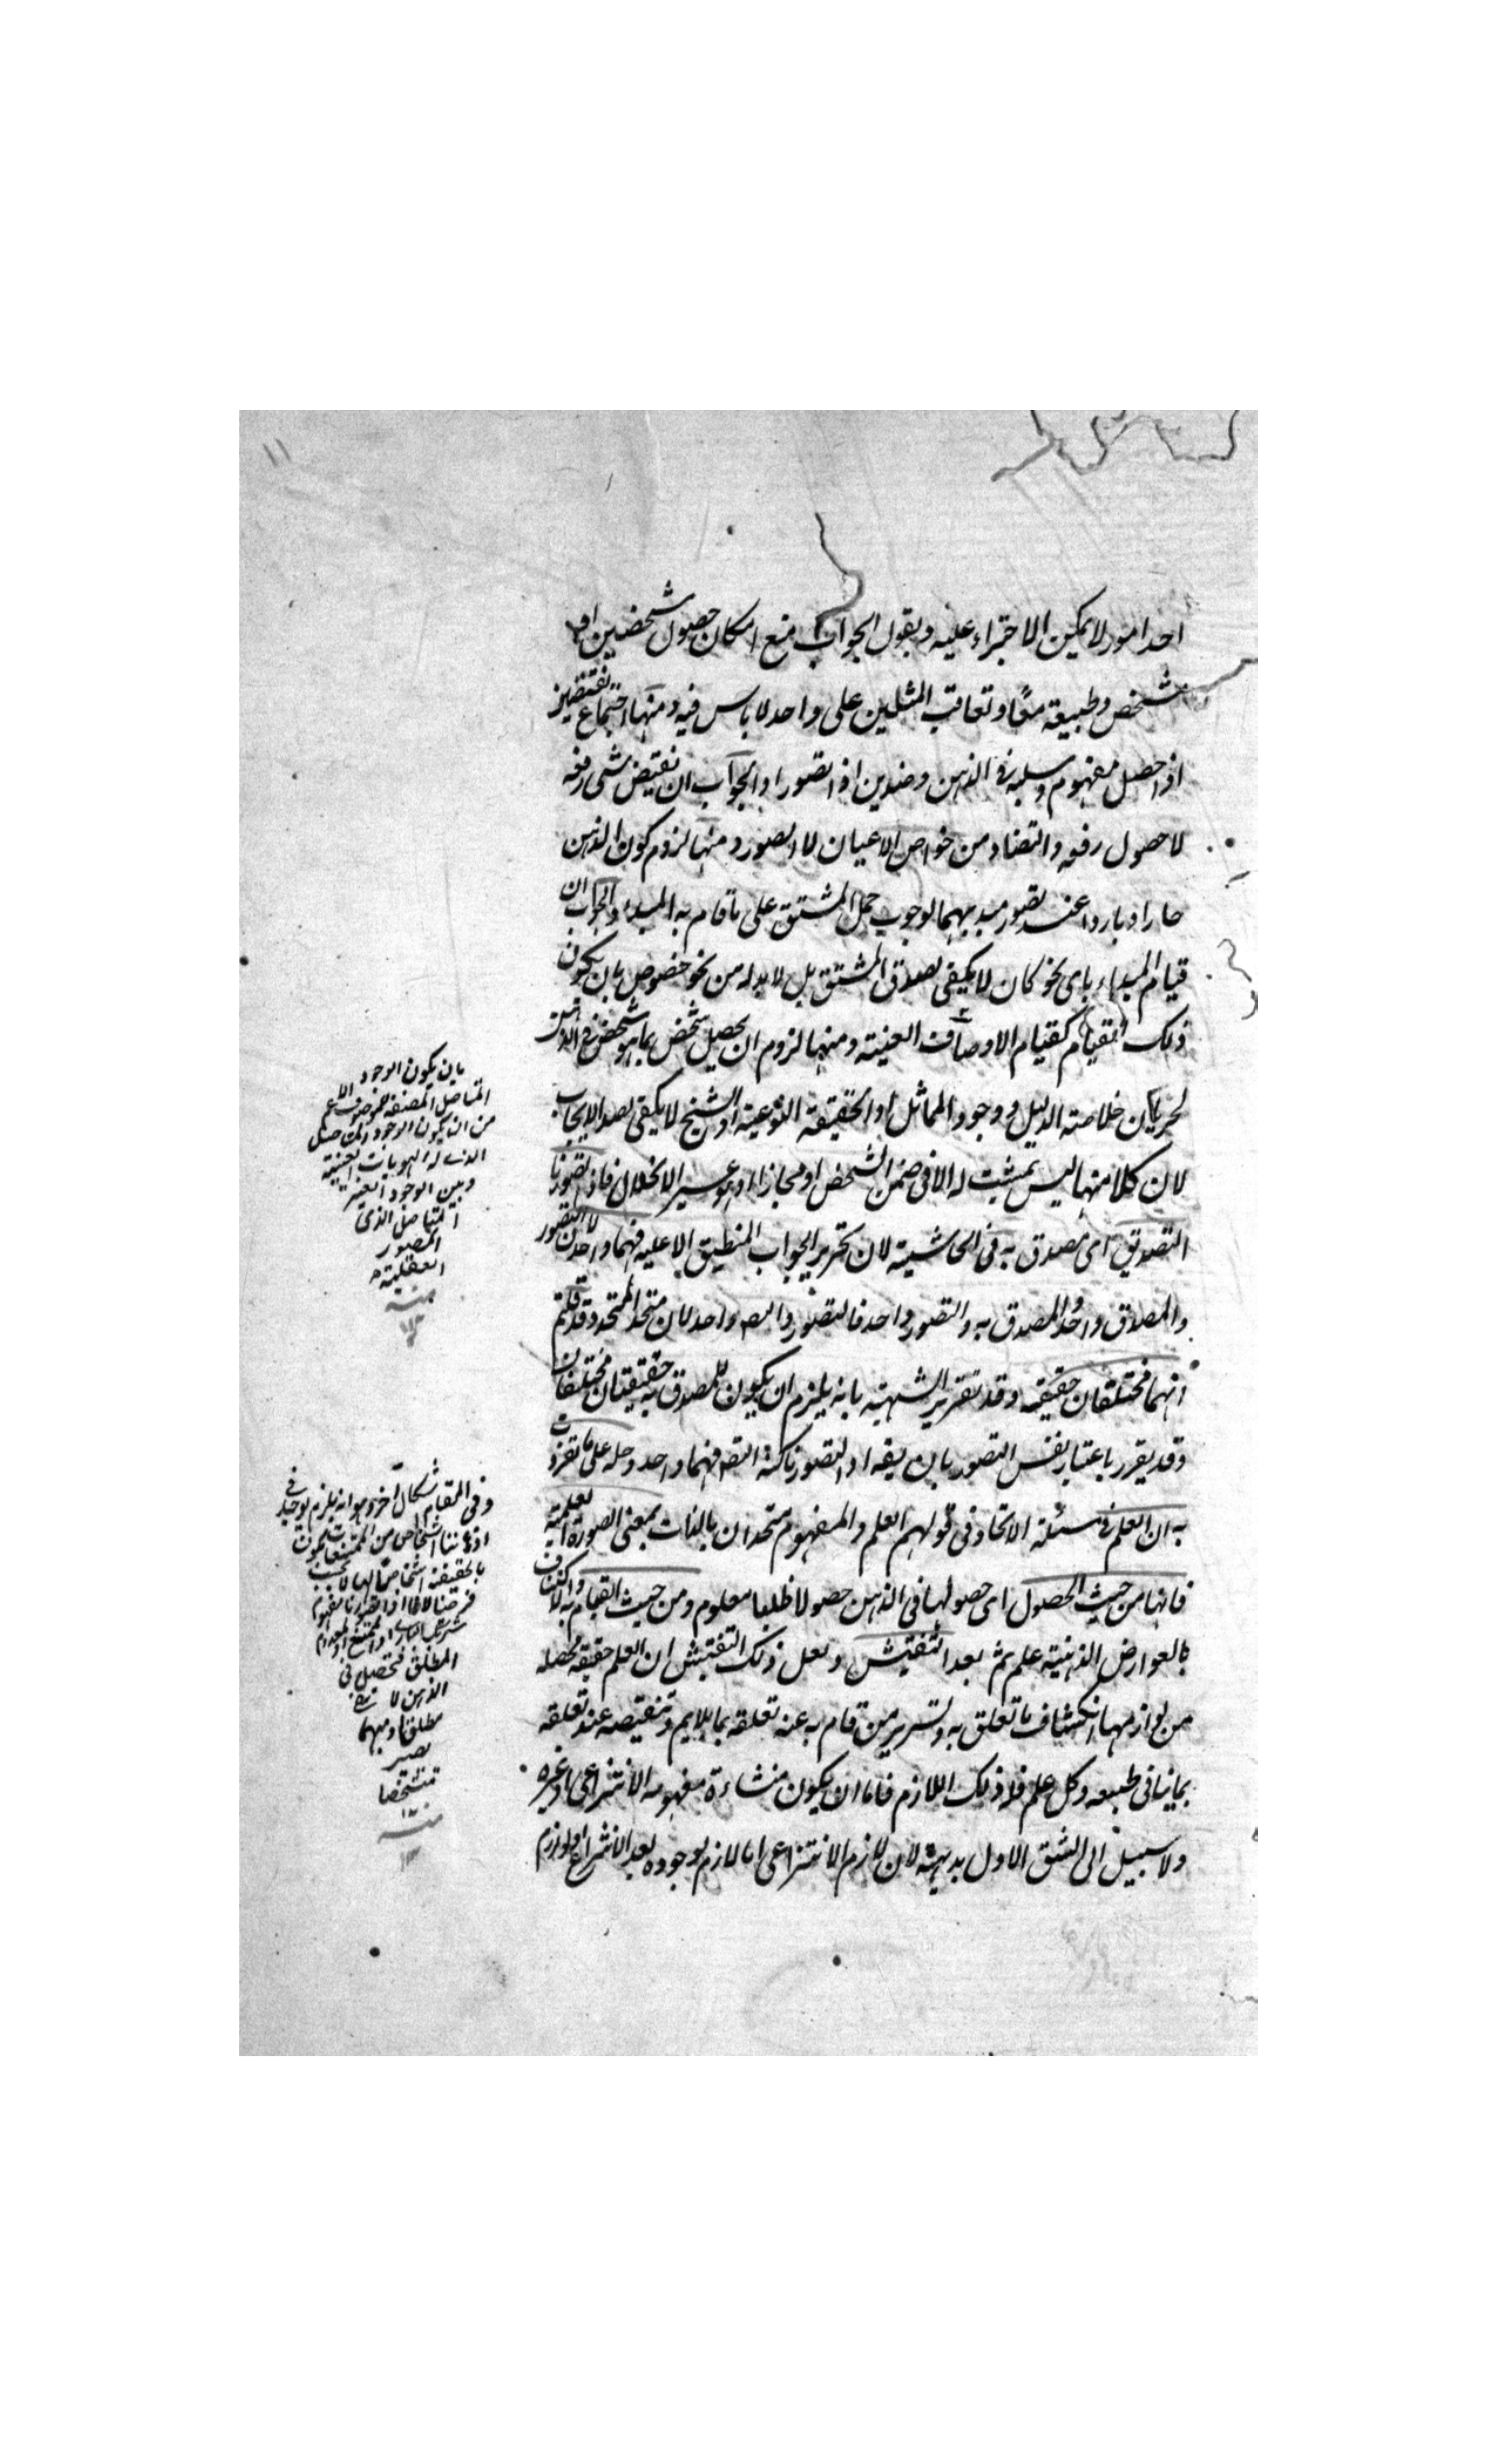 احد امور لا يمكن الاجتراء عليه ويقول الجواب منع امكان حصول شخصين او
شخص وطبيعة معًا وتعاقب المثلين على واحد لا باس فيه ومنها اجتماع نقيضين
اذا حصل مفهوم وسلبه في الذهن وضدين اذا تصورا والجواب ان نقيض شئ رفعه
لا حصول رفعه والتضاد من خواص الاعيان لا الصور ومنها لزوم كون الذهن
حارا وباردا عند تصور مبديهما لوجوب حمل المشتق على ما قام به المبداء والجواب ان
قيام المبداء باى نحو كان لا يكفى لصدق المشتق بل لا بد له من نحو خصوص بان يكون
ذلك القيام كقيام الاوصاف العينية ومنها لزوم ان يحصل شخص بما هو شخص في الذهن
لجريان خلاصة الدليل ووجود المماثل او الحقيقة النوعية او الشبح لا يكفى لصدق الايجاب
لان كلا منها ليس بمثبت له الا فى ضمن الشخص او مجازا وهو عسير الانحلال فاذا تصورنا
التصديق اى مصدق به فى الحاشية لان تحرير الجواب المنطبق الا عليه فهما واحد لان التصور
والمصدق واحد والمصدق به والتصور واحد فالتصور والتص واحد لان متحد المتحد وقد قلتم
انهما مختلفان حقيقة وقد تقرير الشبهة بانه يلزم ان يكون للمصدق به حقيقتان مختلفتان
وقد يقرر باعتبار نفس التصور بان يقه اذا تصورنا كنه التص فهما واحد وحله على ما تفردت
به ان العلم في مسئلة الاتحاد فى قولهم العلم والمفهوم متحدان بالذات بمعنى الصورة العلمية
فانها من حيث الحصول اى حصولها فى الذهن حصولا ظليا معلوم ومن حيث القيام به والاكتناف
بالعوارض الذهنية علم ثم بعد التفتيش ولعل ذلك التفتيش ان العلم حقيقة محصلة
من لوازمها انكشاف ما تعلق به وتسرير من قام به عند تعلقه بما يلايم وتنقيصه عند تعلقه
بما ينافى طبيعه وكل علم فله ذلك اللازم فاما ان يكون منشاءه مفهومه الانتزاعى او غيره
ولا سبيل الى الشق الاول بديهة لان لازم الانتزاعى اما لازم لوجوده بعد الانتزاع او لازم
بان يكون الوجود
من ان يكون الوجود المتاصل
الذى له الهويات العينية
وبين الوجود الغير
المتاصل الذى
للصور
العقلية
منه
وفى المقام اشكال آخر وهو انه يلزم ان يوجد فى
اذهاننا اشخاص من الممتنعات تكون
بالحقيقة اشخاصا لها لا بحسب
فرضنا لانا اذا تصورنا مفهوم
شريك البارى او الممتنع او المعدوم
المطلق فتحصل فى
الذهن
يصير
متشخصا
منه